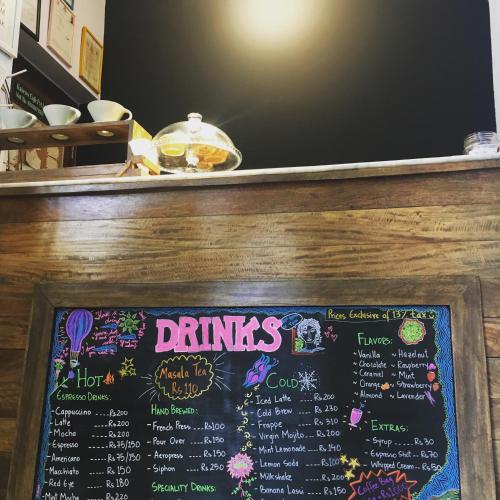 DRINKS
Prices Exclusive of 13% tax
HOT
ESPRESSO DRINKS:
Cappuccino .... Rs 200
- Latte .... Rs 200
- Mocha .... Rs 200
- Espresso .... Rs 75/150
- Americano .... Rs 75/150
Macchiato .... Rs 150
Red Eye .... Rs 180
Mint Mocha .... Rs 220
Masala Tea
Rs 110
HAND BREWED:
- French Press .... Rs 100
- Pour Over .... Rs 150
- Aeropress .... Rs 150
- Siphon .... Rs 250
SPECIALITY DRINKS:
COLD
- Iced Latte .... Rs 200
- Cold Brew .... Rs 230
- Frappe .... Rs 310
- Virgin Mojito .... Rs 200
- Mint Lemonade .... Rs 140
- Lemon Soda .... Rs 100
- Milkshake .... Rs 200
- Banana Lassi .... Rs 150
FLAVORS:
~ Vanilla ~ Hazelnut
~ Chocolate ~ Raspberry
~ Caramel ~ Mint
~ Orange ~ Strawberry
~ Almond ~ Lavender
EXTRAS:
- Syrup .... Rs 30
- Espresso Shot .... Rs 70
- Whipped Cream .... Rs 50
Coffee Bag